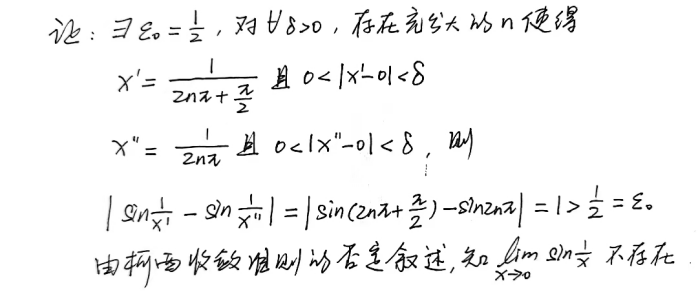 证：∃ε₀=1/2，对∀δ>0，存在充分大的n使得
x'=1/(2nπ+π/2) 且 0<|x'-0|<δ
x"=1/(2nπ) 且 0<|x"-0|<δ，则
|sin1/x' - sin1/x"|=|sin(2nπ+π/2)-sin2nπ|=1>1/2=ε₀
由柯西收敛准则的否定叙述，知 lim x→0 sin1/x 不存在.